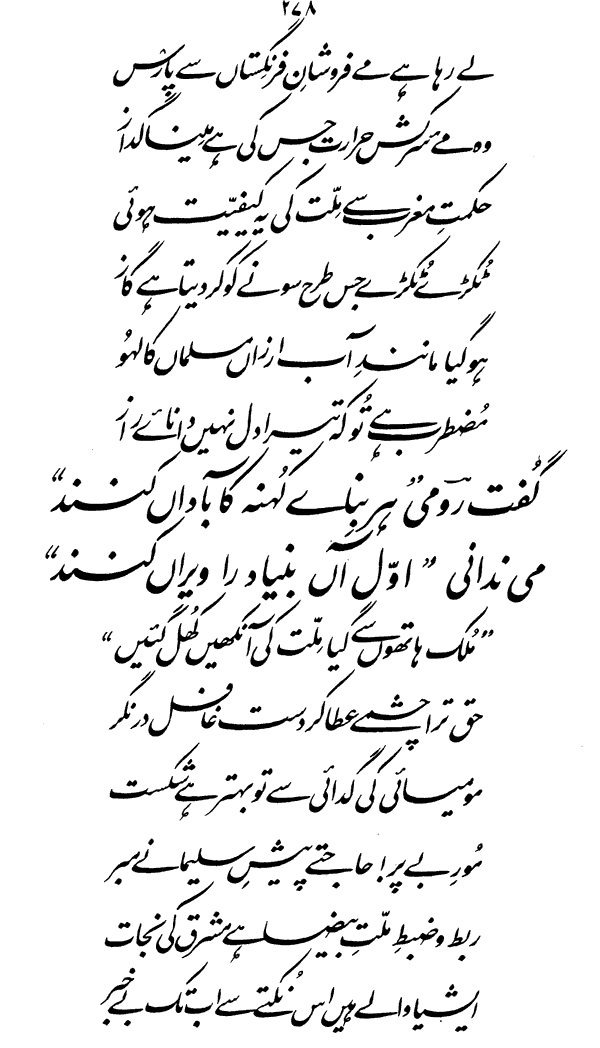 ۲۷۸
لے رہا ہے مے فروشانِ فرنگستاں سے پارس
وہ مے سرکش حرارت جس کی ہے مینا گداز
حکمتِ مغرب سے ملّت کی یہ کیفیّت ہوئی
ٹکڑے ٹکڑے جس طرح سونے کو کر دیتا ہے گاز
ہو گیا مانندِ آب ارزاں مسلماں کا لہُو
مُضطرب ہے تُو کہ تیرا دل نہیں دانائے راز
گُفت رومیؔ ”ہر بِنائے کُہنہ کآباداں کنند“
می ندانی ”اوّل آں بنیاد را ویراں کنند“
”مُلک ہاتھوں سے گیا مِلّت کی آنکھیں کھُل گئیں“
حق ترا چشمے عطا کردست غافل در نگر
مومیائی کی گدائی سے تو بہتر ہے شکست
مُورِ بے پر! حاجتے پیشِ سلیمانے مبر
ربط و ضبطِ ملّتِ بیضا ہے مشرق کی نجات
ایشیا والے ہیں اس نُکتے سے اب تک بے خبر